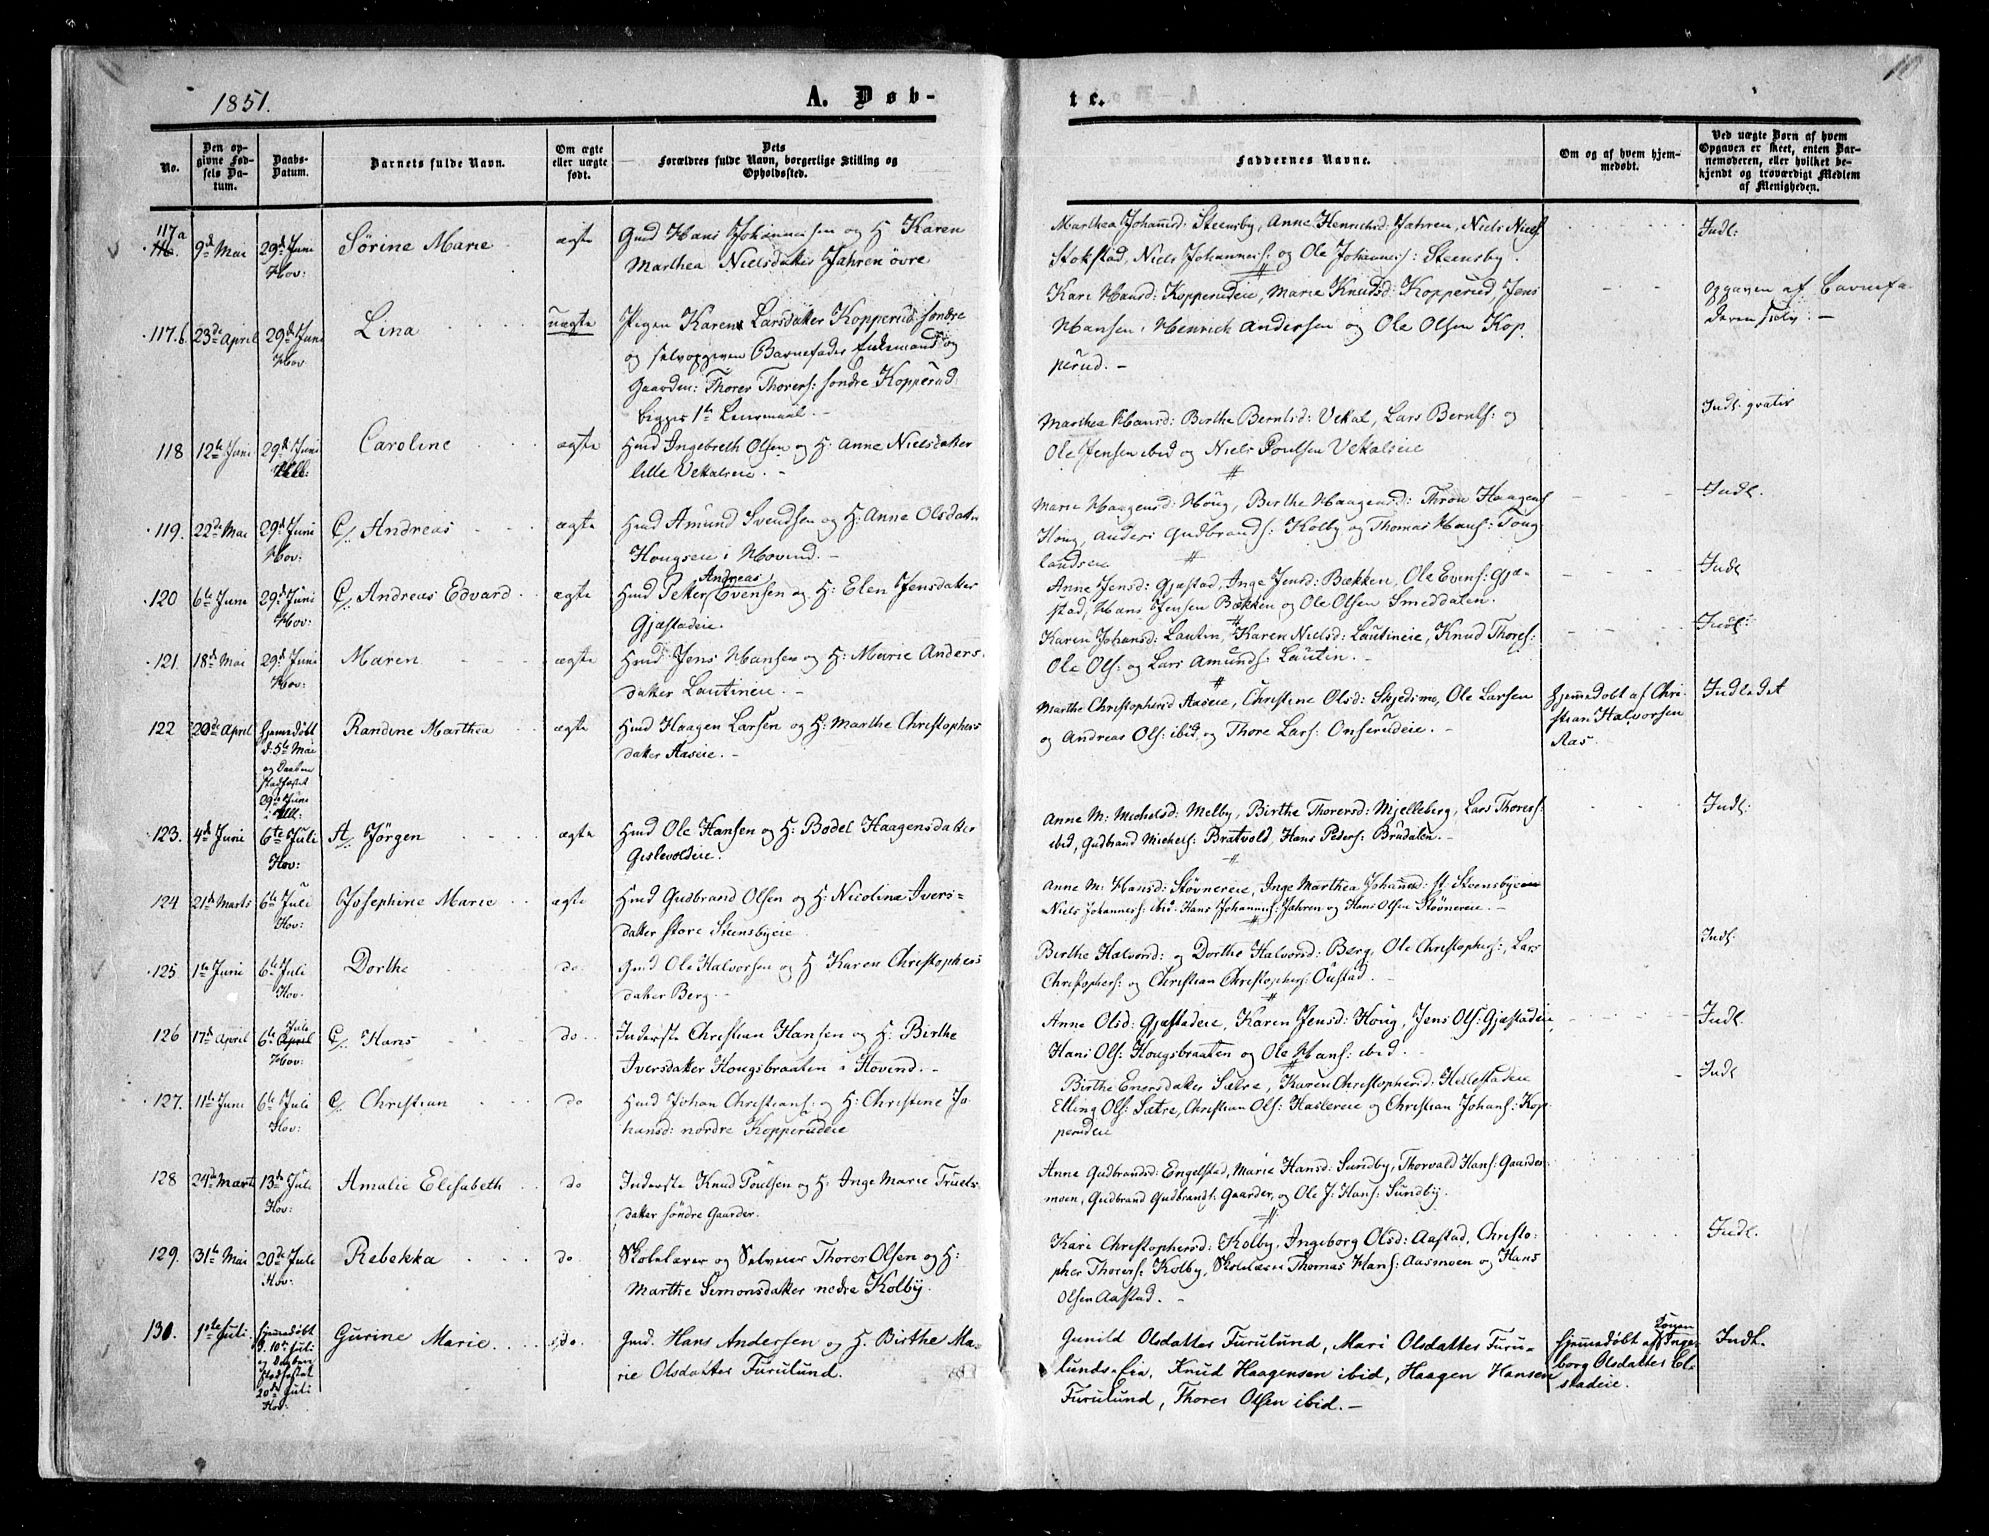 1851.
A. Døb-
te.
10
No.
Den op-
givne Fød-
sels Da-
tum.
Daabs-
Datum.
Barnets fulde Navn.
Om ægte
eller uægte
født.
Dets
Forældres fulde Navn, borgerlige Stilling og
Opholdssted.
Faddernes Navne.
Om og af hvem hjem-
medøbt.
Ved uægte Børn af hvem
Opgaven er skeet, enten Bar-
nemoderen, eller hvilket be-
kjendt og troværdigt Medlem
af Menigheden.
117 a
9d Mai
29d Juni
Hov:
Sørine Marie
ægte
Gmd Hans Johannesen og H Karen
Marthea Nielsdatter Jahren övre
Marthea Johannsd: Steensby, Anne Henrichsd: Jahren, Niels Niels:
Stokstad, Niels Johanness: og Ole Johanness: Steensby.
Indl:
117.b
23de April
29d Juni
Hov
Lina
uægte
Pigen Karen Larsdatter Kopperud søndre
og selvopgiven Barnefader Enkemand og
Gaardm: Thorer Thorers: søndre Kopperud
begges 1te Leiermaal. -
Kari Hansd: Kopperudeie, Marie Knudsd: Kopperud, Jens
Hansen, Henrick Andersen og Ole Olsen Kop
perud. -
Opgaven af Barnefa-
deren selv: -
118
12te Juni
29d Juni
Caroline
ægte
Hmd Ingebreth Olsen og H: Anne Nielsdatter
lille Vekaleie. -
Marthea Hansd: Birthe Berntsd: Vekal, Lars Bernts: og
Ole Jensen ibid og Niels Poulsen Vekaleie
Indl. gratis
119.
22de Mai
29d Juni
Hov:
C/. Andreas
ægte
Hmd Amund Svendsen og H: Anne Olsdatter
Hougseie i Hovind. -
Marie Haagensd: Houg, Birthe Haagensd: Thron Haagens
Houg, Anders Gudbrands: Kolby og Thomas Hans: Toug
landseie
Indl.
120
6te Juni
29d Juni
Hov:
C/. Andreas Edvard
ægte
Hmd Peter Andreas Evensen og H: Elen Jensdatter
Gjæstadeie.
Anne Jensd: Gjæstad, Inge Jensd: Bækken, Ole Evens: Gjæ-
stad, Hans Jensen Bækken og Ole Olsen Smeddalen.
Indl
121.
18d Mai
29d Juni
Hov:
Maren
ægte
Hmd Jens Hansen og H: Marie Anders-
datter Lautineie. -
Karen Johansd: Lautin, Karen Nielsd: Lautineie, Knud Thores:
Ole Ols: og Lars Amunds: Lautin. -
Indl:
122
20de April
hjemmedøbt
d: 5te Mai
og Daaben
stadfæstet
29de Juni
Randine Marthea
ægte
Hmd Haagen Larsen og H: Marthe Christophers
datter Aaseie. -
Marthe Christophersd Aaseie, Christine Olsd: Skjedsmo, Ole Larsen
og Andreas Ols: ibid og Thore Lars: Onserudeie. -
Hjemmedøbt af Chri-
stian Halvorsen
Aas. -
Indledet
123.
4d Juni
6te Juli
Hov:
A/. Jørgen
ægte
Hmd Ole Hansen og H: Bodel Haagensdatter
Geslevoldeie.
Anne M: Michelsd: Melby, Birthe Thorersd: Mjelleberg, Lars Thorers:
ibid, Gudbrand Michels: Bratvold, Hans Peders: Brudalen. -
Indl:
124
21de Marts
6te Juli
Hov:
Josephine Marie
ægte
Hmd Gudbrand Olsen og H: Nicoline Ivers-
datter store Steensbyeie
Anne M: Hansd: Støvnereie, Inge Marthea Johannesd: st. Steensbyeie
Niels Johanness: ibid. Hans Johanness: Jahren og Hans Olsen Støvnereie. -
125.
1te Juni
6te Juli
Hov.
Dorthe
do.
Gmd Ole Halvorsen og H Karen Christophers
datter Berg. -
Birthe Halvorsd: og Dorthe Halvorsd: Berg, Ole Christophers:, Lars
Christophers: og Christian Christophers: Oustad.
Indl:
126
17de April
6te Juli
Hov:
C/. Hans
do.
Inderste Christian Hansen og H: Birthe
Iversdatter Hougsbraaten i Hovind. -
Anne Olsd: Gjæstadeie, Karen Jensd: Houg, Jens Ols: Gjæstadeie,
Hans Ols: Hougsbraaten og Ole Hans: ibid.
Indl.
127.
11te Juni
6te Juli
Hov:
C/. Christian
do
Hmd Johan Christians: og H: Christine Jo-
hansd: nordre Kopperudeie
Birthe Enersdatter Sætre, Karen Christophersd: Hellestadeie
Elling Ols: Sætre, Christian Ols: Haslereie og Christian Johans: Kop-
perudeie
Indl
128
24de Marts
13de Juli
Hov:
Amalie Elisabeth
do
Inderste Knud Poulsen og H: Inge Marie Truels-
datter søndre Gaarder.
Anne Gudbrandsd: Engelstad, Marie Hansd: Sundby, Thorvald Hans: Gaarder-
moen, Gudbrand Gudbrands: Gaarder, og Ole J: Hans: Sundby.
129.
31te Mai
20de Juli
Hov:
Rebekka
do.
Skolelærer og Selveier Thorer Olsen og H:
Marthe Simonsdatter nedre Kolby.
Kari Christophersd: Kolby, Ingeborg Olsd: Aastad, Christo-
pher Thorers: Kolby, Skolelærer Thomas Hans: Aasmoen og Hans
Olsen Aastad. -
Indl.
130.
1ste Juli.
hjemmedøbt
d. 10de Juli
og Daaben
stadfæstet
20de Juli
Hov.
Gurine Marie
do.
Gmd. Hans Andersen og H. Birthe Ma-
rie Olsdatter Furulund.
Gunild Olsdatter Furulund, Mari Olsdatter Furu-
lunds-Eie, Knud Haagensen ibid, Haagen Hansen
Furulund, Thorer Olsen ibid. -
Hjemmedøbt af Inge-
borg Olsdatter El-
stadeie.
Indl.